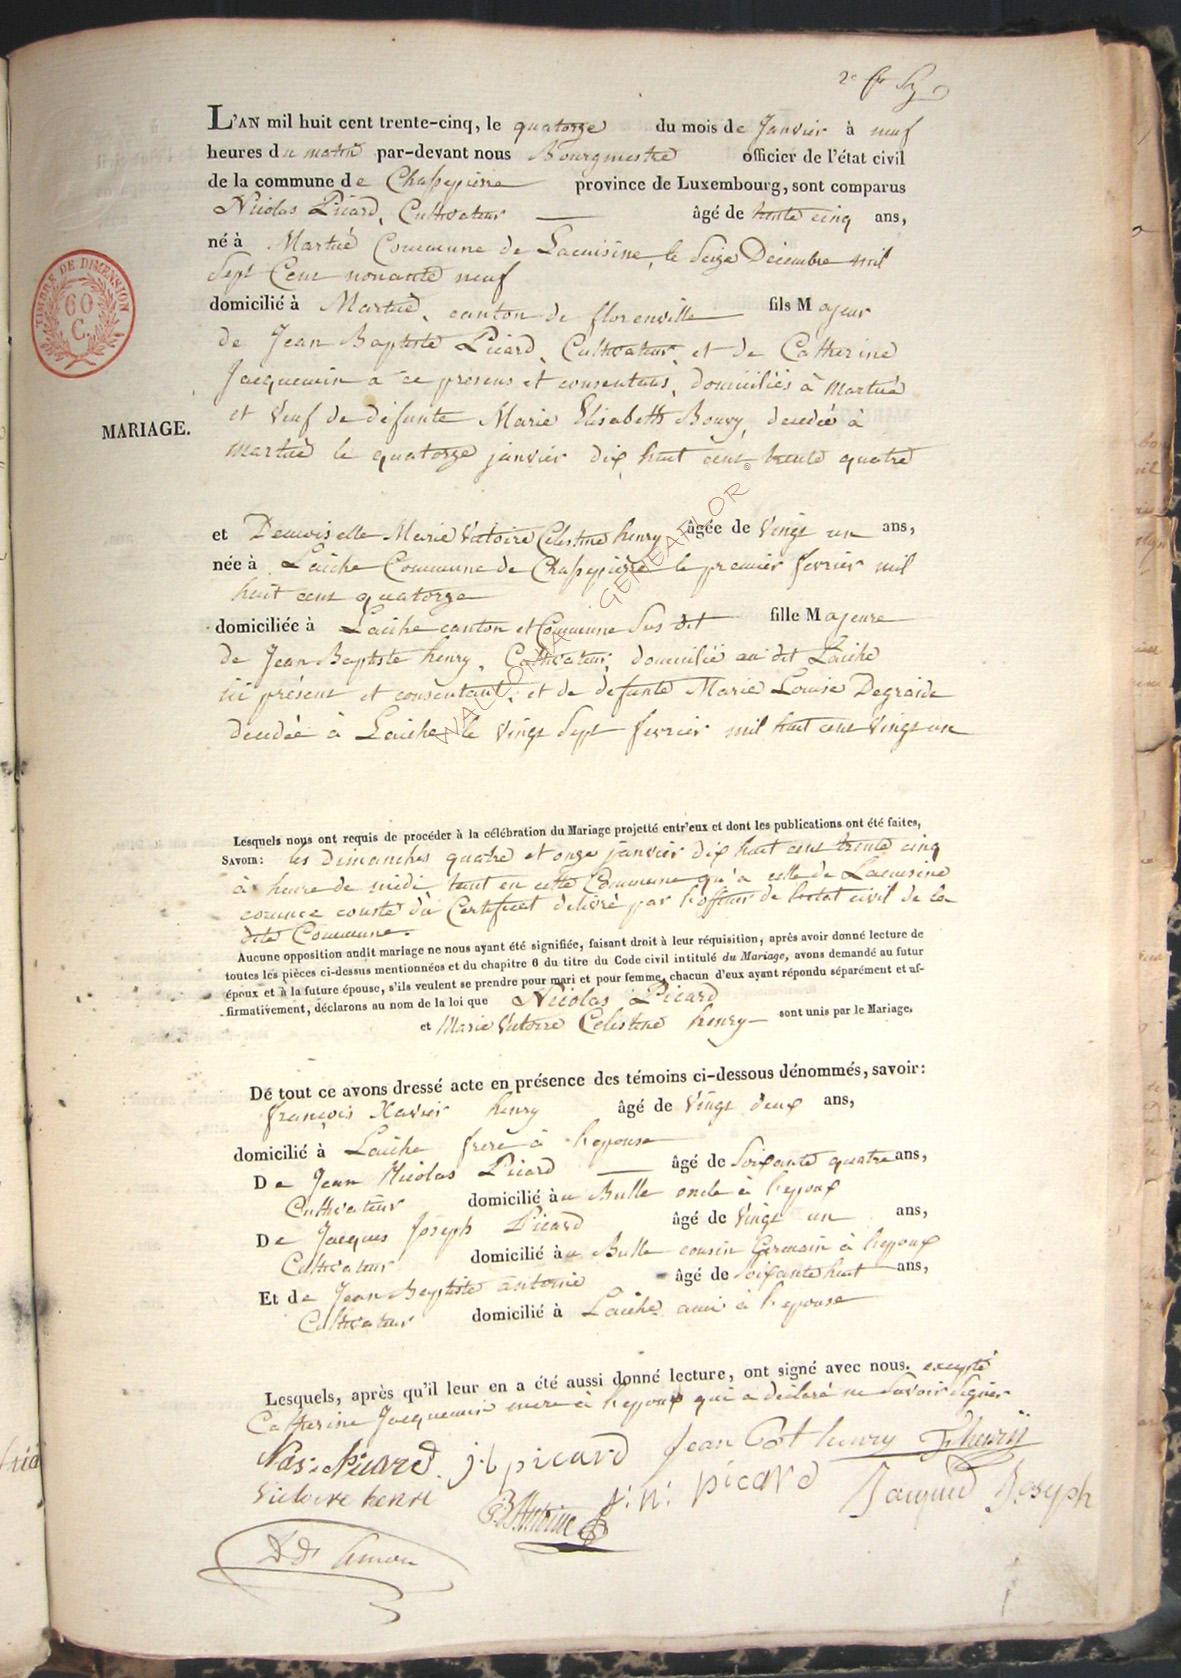 2e
L'AN mil huit cent trente-cinq, le quatorze du mois de Janvier à neuf
heures du matin par-devant nous Bourgmestre officier de l'état civil
de la commune de Chassepierre province de Luxembourg, sont comparus
Nicolas Picard, Cultivateur âgé de trente cinq ans,
né à Martué Commune de Lacuisine, le Seize Décembre mil
Sept Cent nonante neuf
domicilié à Martué, canton de florenville fils Majeur
de Jean Baptiste Picard, Cultivateur, et de Catherine
Jacquemin a ce presens et consentans, domiciliés à Martué
et Veuf de défunte Marie Elisabeth Bouvy, decedée à
Martué le quatorze janvier dix huit cent trente quatre
MARIAGE.
TIMBRE DE DIMENSION
60
C.
et Demoiselle Marie Victoire Celestine henry âgée de Vingt un ans,
née à Laiche Commune de Chassepierre le premier fevrier mil
huit cent quatorze
domiciliée à Laiche canton et Commune Sus dit fille Majeure
de Jean Baptiste henry, Cultivateur, domicilié au dit Laiche
ici présent et consentant, et de defunte Marie Louise Degraide
decedée à Laiche le Vingt Sept fevrier mil huit cent Vingt un
WALLONIA GENEARLOR ©
Lesquels nous ont requis de procéder à la célébration du Mariage projetté entr'eux et dont les publications ont été faites,
SAVOIR: les dimanches quatre et onze janvier dix huit cent trente cinq
à heure de midi tant en cette Commune qu'a celle de Lacuisine
comme conste du Certificat délivré par l'officier de l'etat civil de la
dite Commune.
Aucune opposition audit mariage ne nous ayant été signifiée, faisant droit à leur réquisition, après avoir donné lecture de
toutes les pièces ci-dessus mentionnées et du chapitre 6 du titre du Code civil intitulé du Mariage, avons demandé au futur
époux et à la future épouse, s'ils veulent se prendre pour mari et pour femme, chacun d'eux ayant répondu séparément et af-
firmativement, déclarons au nom de la loi que Nicolas Picard
et Marie Victoire Celestine henry sont unis par le Mariage.
De tout ce avons dressé acte en présence des témoins ci-dessous dénommés, savoir:
françois Xavier henry âgé de Vingt deux ans,
domicilié à Laiche frere à l'epouse
De Jean Nicolas Picard âgé de Soixante quatre ans,
Cultivateur domicilié au Bulle oncle à l'epoux
De Jacques Joseph Picard âgé de Vingt un ans,
Cultivateur domicilié au Bulle cousin Germain à l'epoux
Et de Jean Baptiste antoine âgé de Soixante huit ans,
Cultivateur domicilié à Laiche ami à l'epouse
Lesquels, après qu'il leur en a été aussi donné lecture, ont signé avec nous. excepté
Catherine Jacquemin mere à l'epoux qui a déclaré ne Savoir Signer
Nas. Picard. j b picard Jean Bt henry henry
Victoire henri Antoine j. n. picard Jacque Joseph